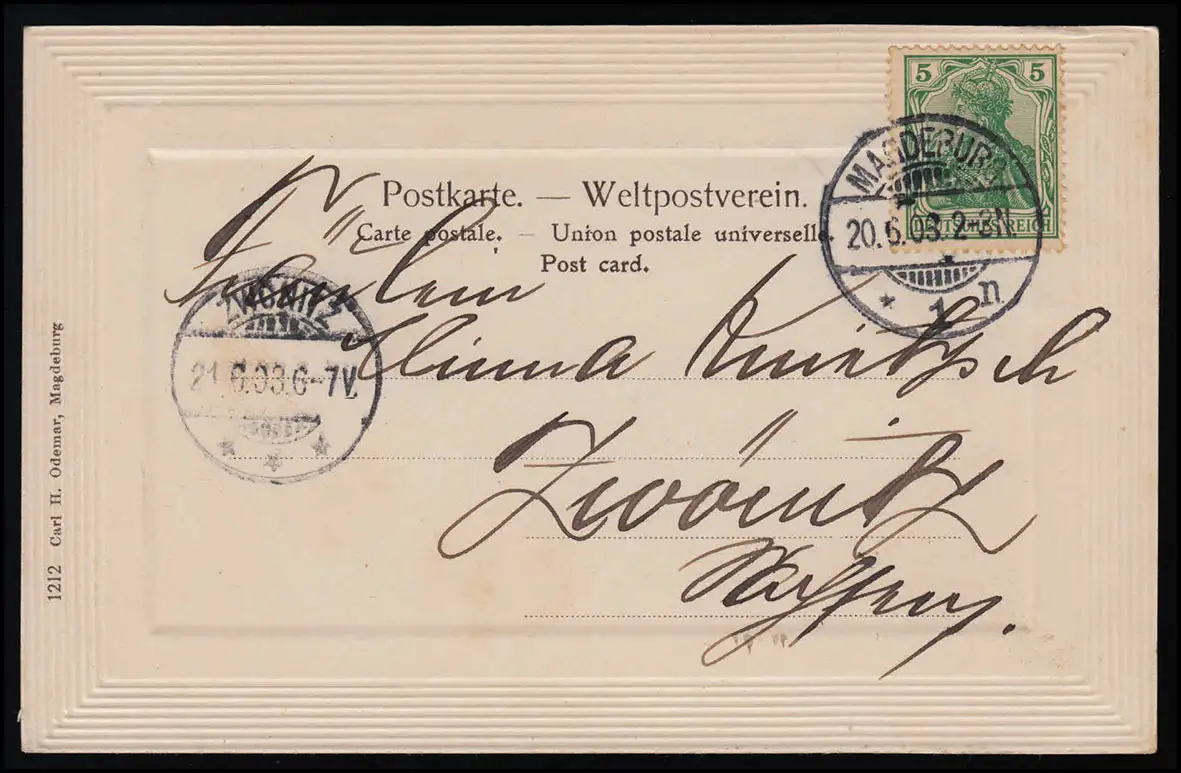 5 5
DEUTSCHES REICH
MAGDEBURG
20.6.03.2-3N
* 1 n
Postkarte. — Weltpostverein.
Carte postale. — Union postale universelle.
Post card.
Fräulein
Minna
Zwönitz
ZWÖNITZ
21.6.03.6-7V.
1212 Carl H. Odemar, Magdeburg